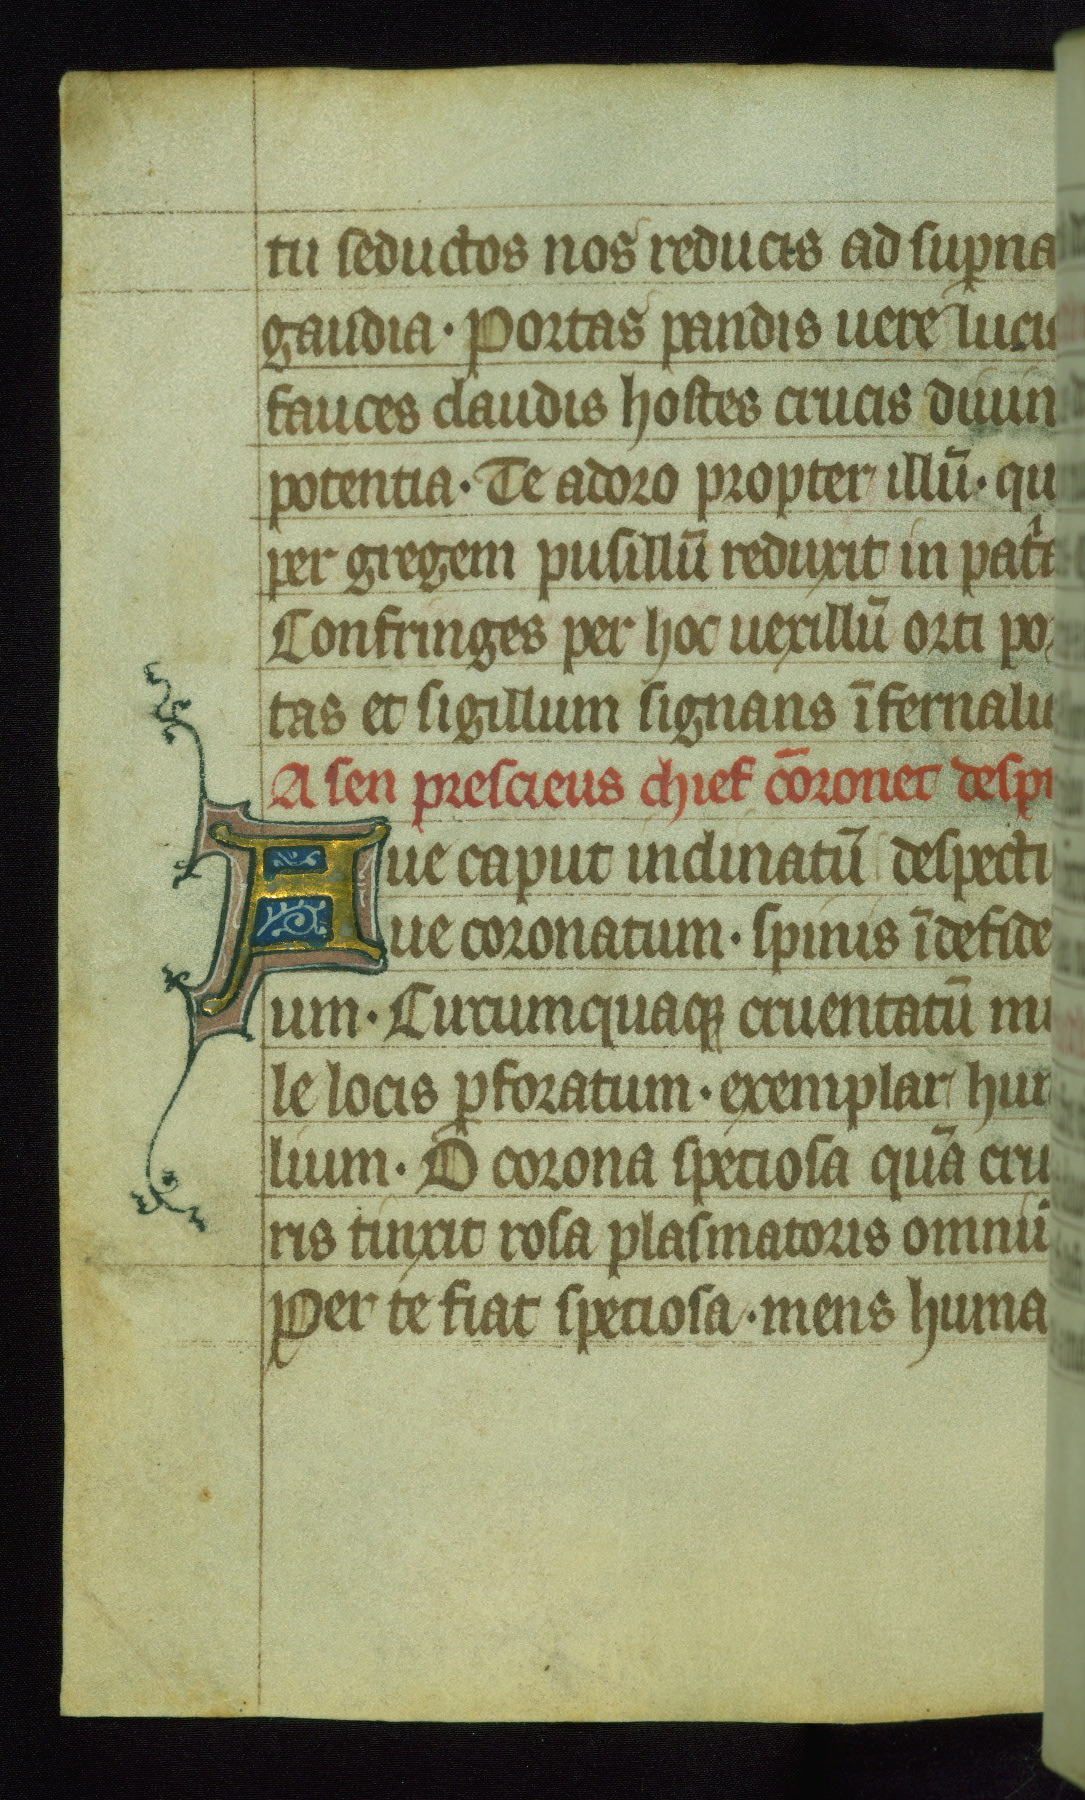 tu seductos nos reducis ad sup̱na
gaudia · Portas pandis uere luci
fauces claudis hostes crucis diuin
potentia · Te adoro propter illū · qu
per gregem pusillū reduxit in pat
Confringes per hoc uexillū orti por
tas et sigillum signans īfernaliu
A sen prescieus chief cōronet despi
Aue caput inclinatū despecti
ue coronatum · spinis īdefide
um · Circumquaqꝫ cruentatū mi
le locis ꝑforatum · exemplar hu
lium · O corona speciosa quā cru
ris tinxit rosa plasmatoris omniū
Per te fiat speciosa · mens huma